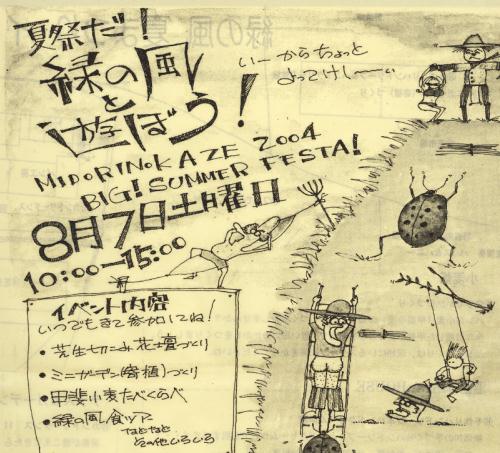 夏祭だ!
緑の風
と
遊ぼう!
いーからちょっと
よってけしーい
MIDORINOKAZE 2004
BIG! SUMMER FESTA!
8月7日土曜日
10:00-15:00
イベント内容
いつでもきて参加してね!
・芝生切こみ花壇づくり
・ミニガーデン(寄植)づくり
・甲斐小麦たべくらべ
・緑の風食ツアー
などなど
その他いろいろ